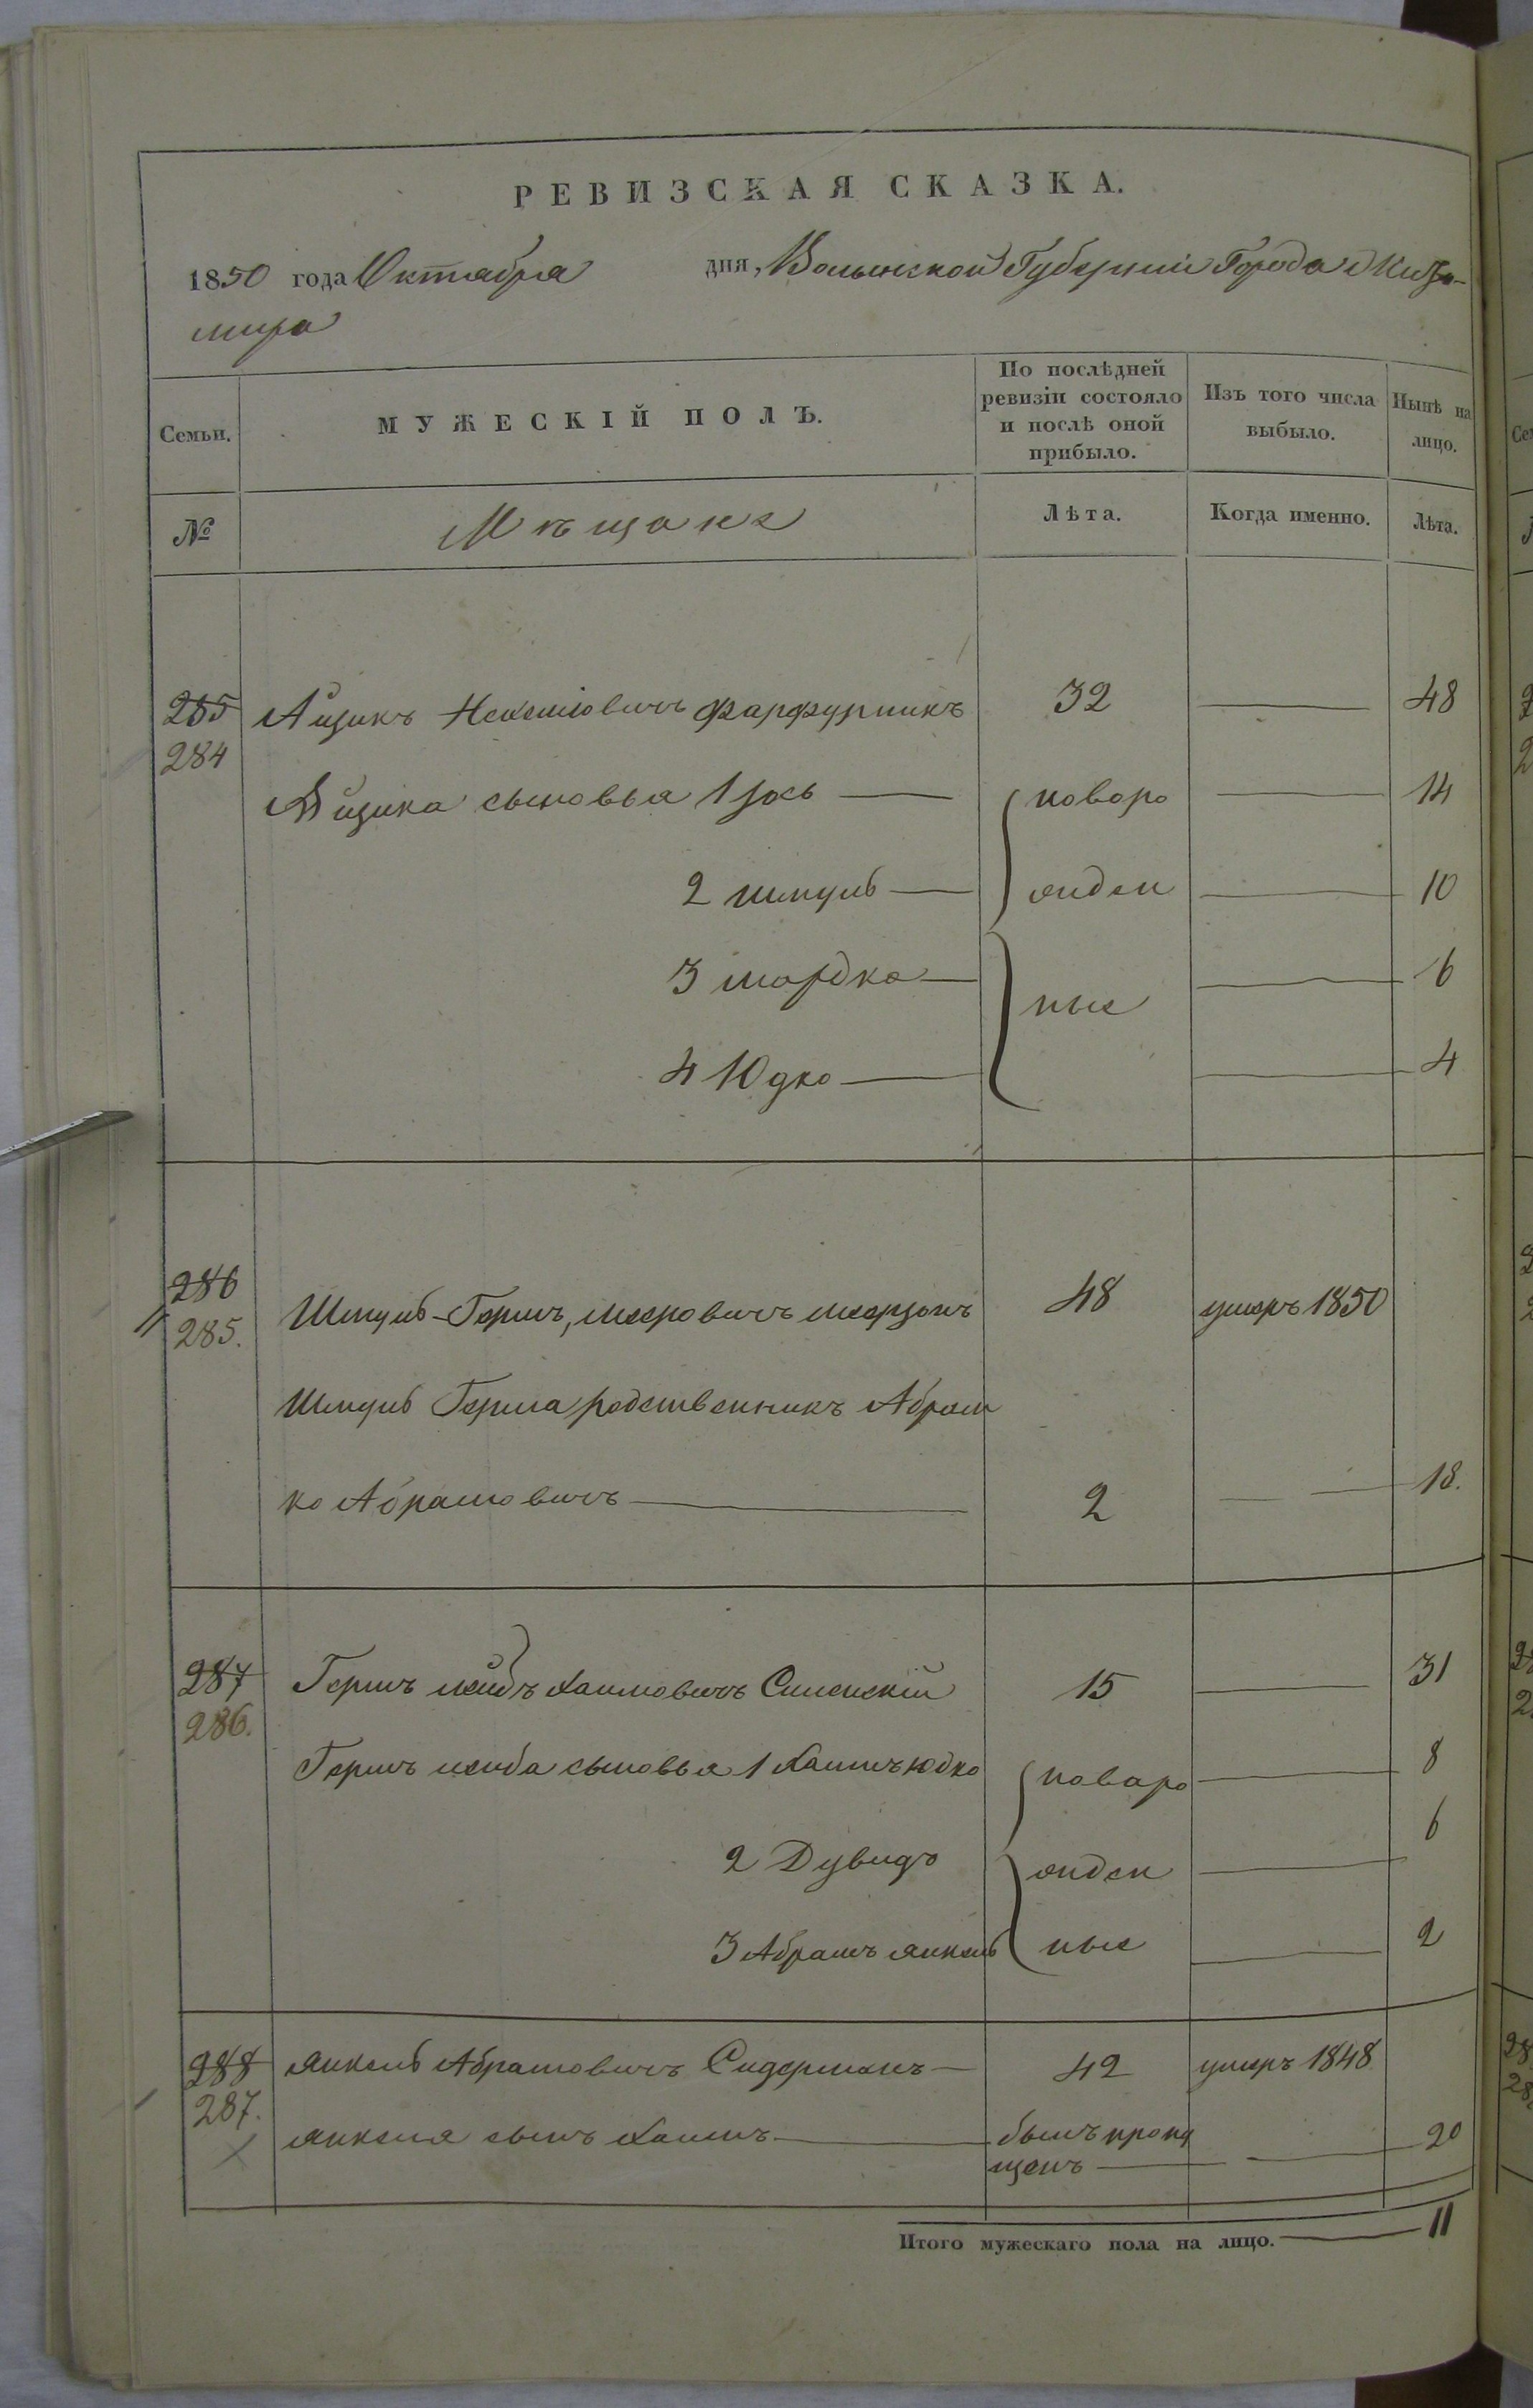 РЕВИЗСКАЯ СКАЗКА.
1850 года Октября дня, Волынской Губерніи Города Жито-
мира
Семьи. МУЖЕСКІЙ ПОЛЪ. По послѣдней ревизіи состояло и послѣ оной прибыло. Изъ того числа выбыло. Нынѣ на лицо.
№ Мѣщане Лѣта. Когда именно. Лѣта.
285 Айзикъ Фарфурникъ 32 — 48
284
Айзика сыновья 1 Іось — новоро — 14
2 Шмуль — жден — 10
3 Мордко — — 6
ные
4 Юдко — — 4
286 Шмуль-Гершъ, Мееровичъ 48 умеръ 1850
285.
Шмуль Герша родственникъ Абрам
ко Абрамовичъ — 2 — 18.
287 Гершъ Лейбъ Хаимовичъ 15 — 31
286.
Гершъ Лейба сыновья 1 Хаимъ Юдко новоро — 8
2 Дувидъ жден — 6
3 Абрамъ Янкель ные — 2
288 Янкель Абрамовичъ Сидерманъ — 42 умеръ 1848
287.
Янкеля сынъ Хаимъ — былъ пропу — 20
щенъ —
Итого мужескаго пола на лицо. — 11